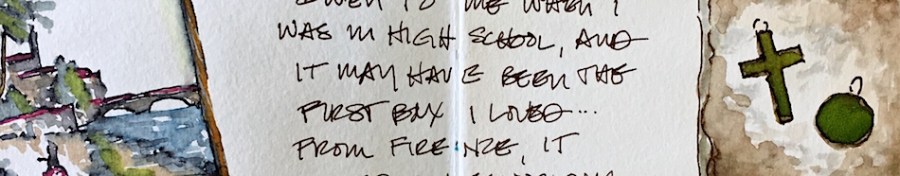 GIVEN TO ME WHEN I
WAS IN HIGH SCHOOL, AND
IT MAY HAVE BEEN THE
FIRST BOX I LOVED...
FROM FIRENZE, IT